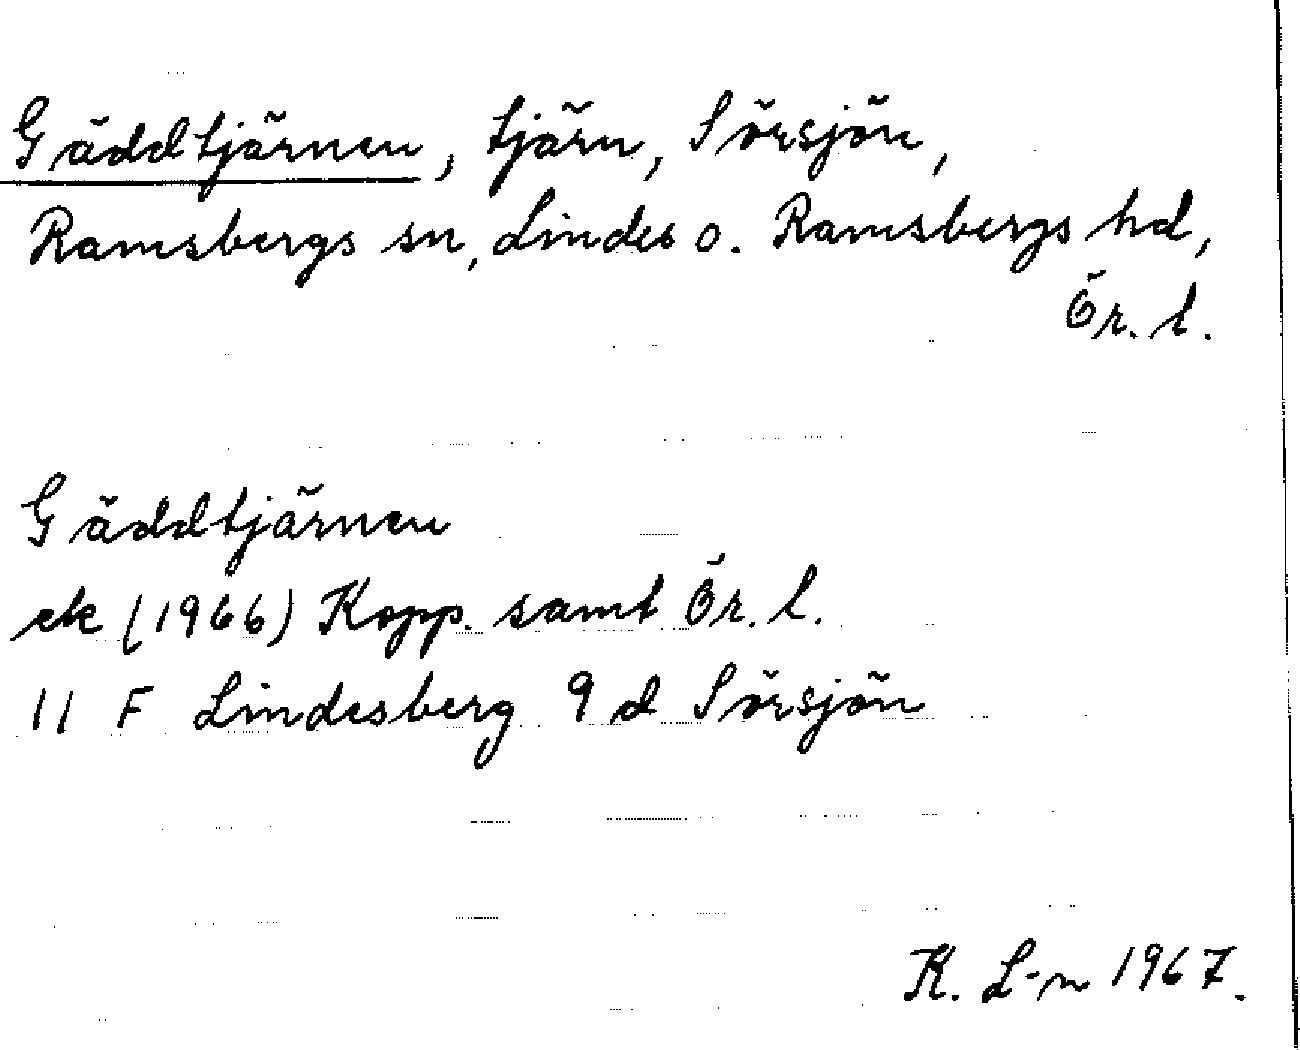 Gäddtjärnen, tjärn, Sörsjön,
Ramsbergs sn, Lindes o. Ramsbergs hd,
Ör. l.
Gäddtjärnen
ek (1966) Kopp. samt Ör. l.
11 F Lindesberg 9 d Sörsjön
K. L-n 1967.